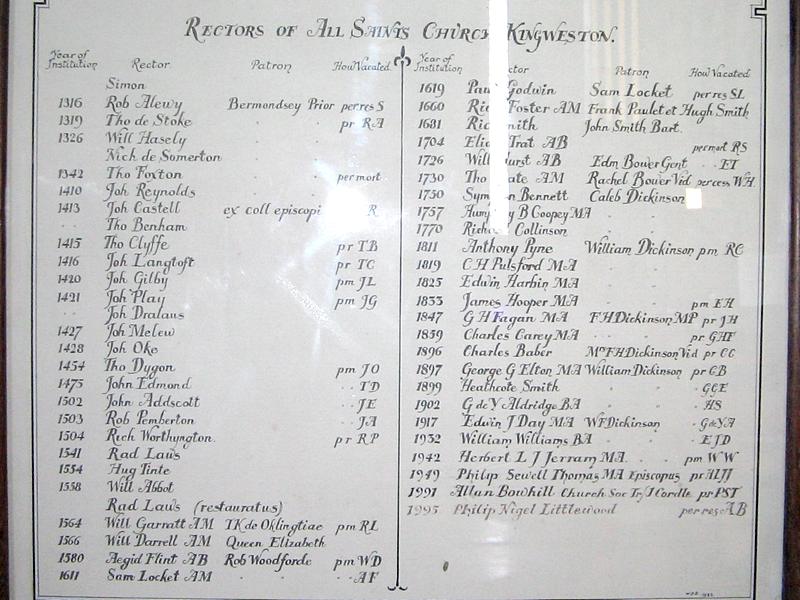 Rectors of All Saints Church Kingweston.
Year of Institution Rector Patron How Vacated
Simon
1316 Rob Alewy Bermondsey Prior per res S
1319 Tho de Stoke pr RA
1326 Will Hasely
Nich de Somerton
1342 Tho Foxton per mort
1410 Joh Reynolds
1413 Joh Castell ex coll episcopi R
Tho Benham
1415 Tho Clyffe pr TB
1416 Joh Langtoft pr TC
1420 Joh Gilby pm JL
1421 Joh Play pm JG
Joh Dralaus
1427 Joh Melew
1428 Joh Oke
1454 Tho Dygon pm JO
1475 John Edmond TD
1502 John Addscott JE
1503 Rob Pemberton JA
1504 Rich Worthyngton. pr RP
1541 Rad Laws
1554 Hug Tinte
1558 Will Abbot
Rad Laws (restauratus)
1564 Will Garratt AM TK de Oklingtiae pm RL
1566 Will Darrell AM Queen Elizabeth
1580 Aegid Flint AB Rob Woodforde pm WD
1611 Sam Locket AM AF
Year of Institution Patron How Vacated
1619 Godwin Sam Locket per res SL
1660 Foster AM Frank Paulet et Hugh Smith
1681 John Smith Bart.
1704 Trat AB per mort RS
1726 Will AB Edm Bower Gent ET
1730 Tho AM Rachel Bower Vid per cess WH
1750 Bennett Caleb Dickinson
1757 B Coopey MA
1770 Collinson
1811 Anthony Pyne William Dickinson pm RC
1819 C H Pulsford MA
1825 Edwin Harbin MA
1833 James Hooper MA pm EH
1847 G H Fagan MA F H Dickinson MP pr JH
1859 Charles Carey MA pr GHF
1896 Charles Baber Mrs F H Dickinson Vid pr CC
1897 George G Elton MA William Dickinson pr CB
1899 Heathcote Smith GGE
1902 G de Y Aldridge BA HS
1917 Edwin J Day MA W F Dickinson G de Y A
1932 William Williams BA EJD
1942 Herbert L J Jerram MA pm WW
1949 Philip Sewell Thomas MA Episcopus pr HLJJ
1991 Allan Bowhill Church Soc Tr/J Cordle pr PST
1995 Philip Nigel Littlewood per res AB